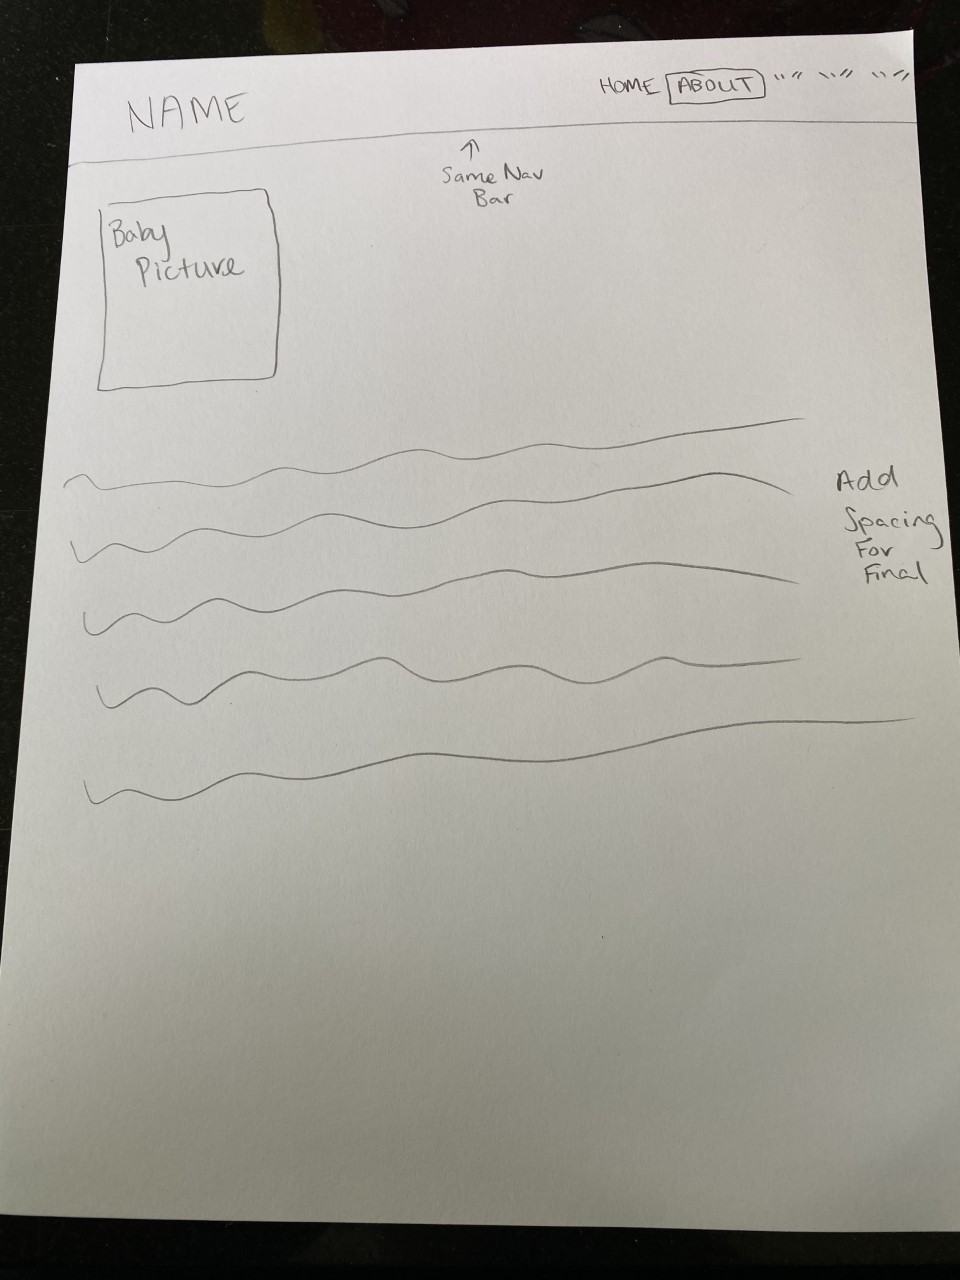 NAME
HOME ABOUT " " " " " "
↑
Same Nav
Bar
Baby
Picture
Add
Spacing
For
Final